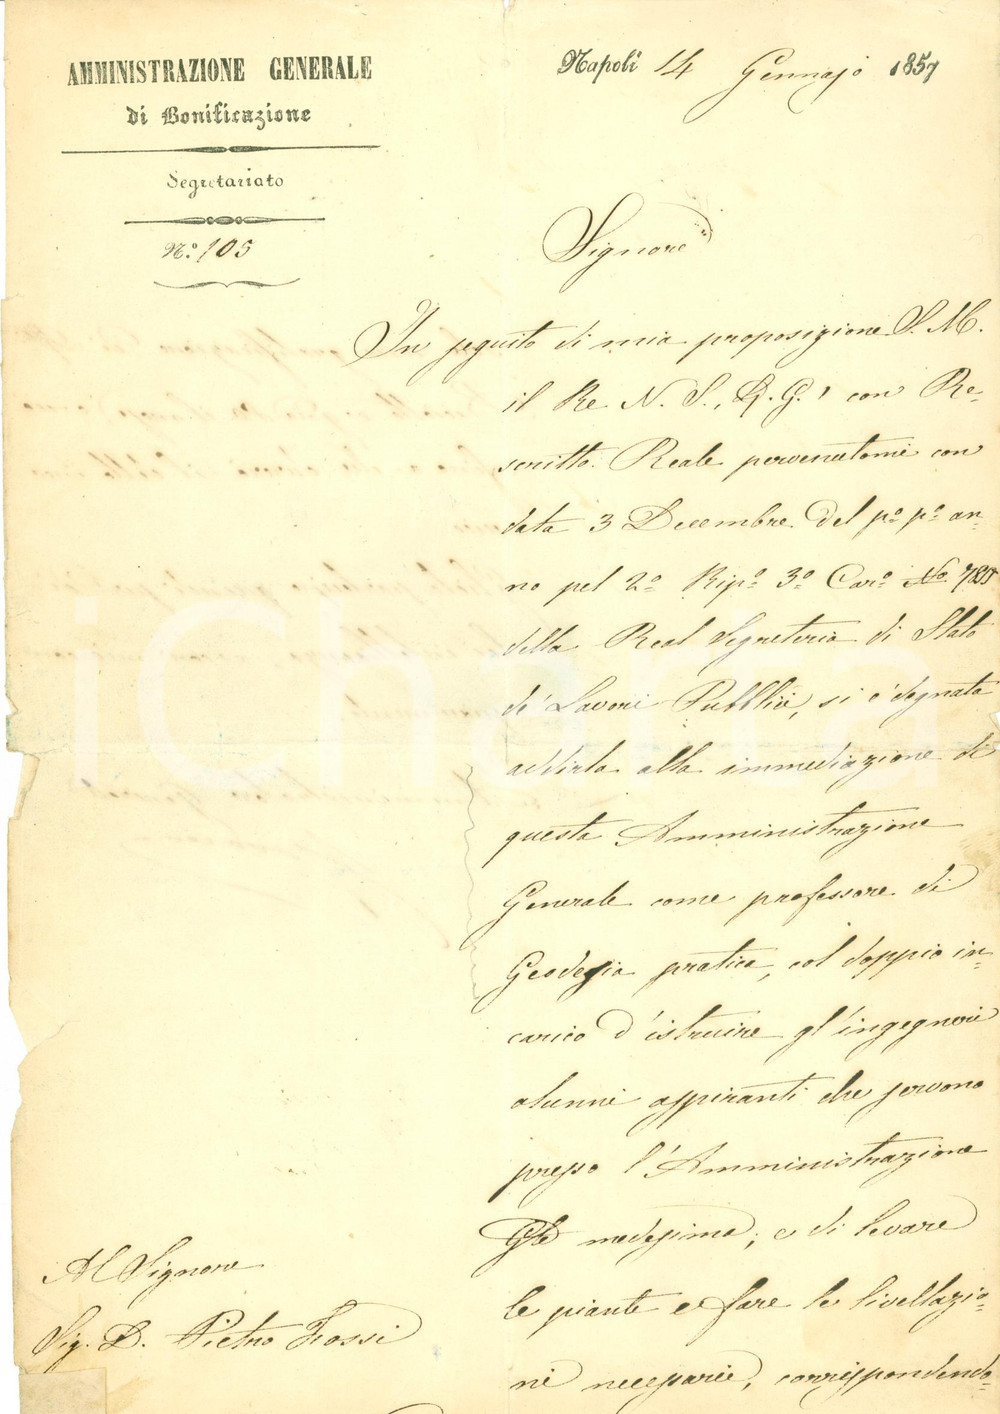 AMMINISTRAZIONE GENERALE
di Bonificazione
Segretariato
N.º 105
Napoli 14 Gennajo 1857
Signore
In seguito di mia proposizione S. M.
il Re N. S., D. G., con Re-
scritto Reale pervenutomi con
data 3 Decembre del pº pº an-
no pel 2º Ripº 3º Carº Nº
della Real Segreteria di Stato
de' Lavori Pubblici, si è degnata
addirla alla immediazione di
questa Amministrazione
Generale come professore di
Geodesia pratica, col doppio in-
carico d'istruire gl'ingegneri
alunni aspiranti che servono
presso l'Amministrazione
Gle medesima; e di levare
le piante e fare le livellazio-
ni necessarie, corrispondendo-
Al Signore
Sig. D. Pietro Tossi
iCharta